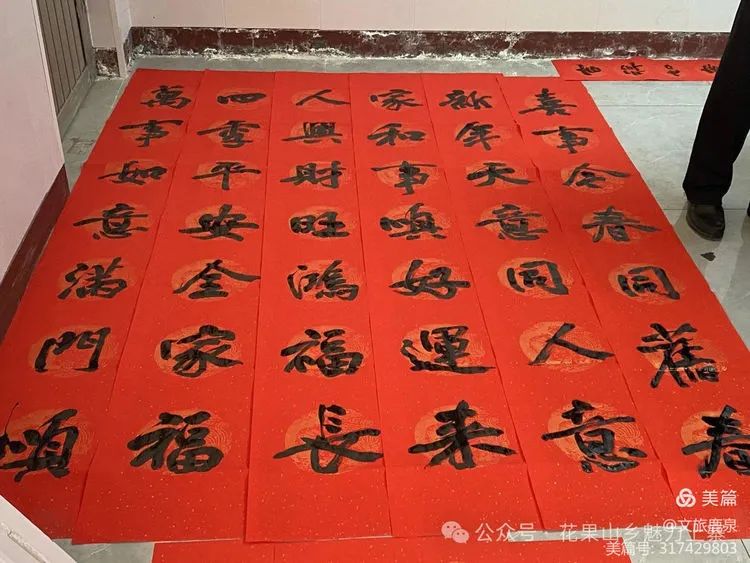 喜事今春同舊春
新年天意同人意
家和事順好運來
人興財旺鴻福長
四季平安全家福
萬事如意滿門順
美篇
@文旅鹿泉
公众号 · 花果山乡魅力上寨
美篇号: 317429803